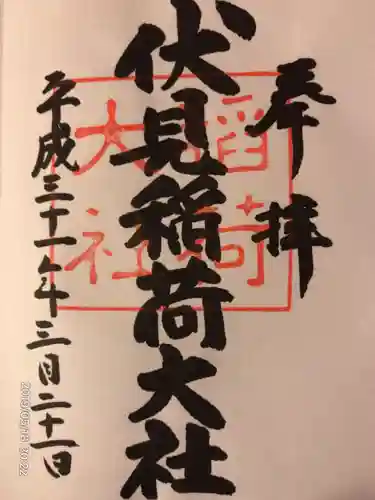 奉拝
伏見稲荷大社
稲荷大社
平成三十一年三月二十一日
2019/05/18 20:22